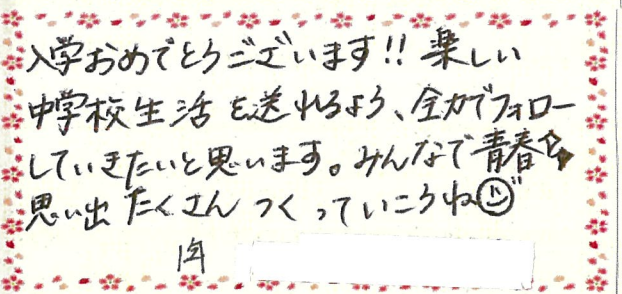 入学おめでとうございます!! 楽しい
中学校生活を送れるよう、全力でフォロー
していきたいと思います。みんなで青春☆
思い出たくさんつくっていこうね
1年